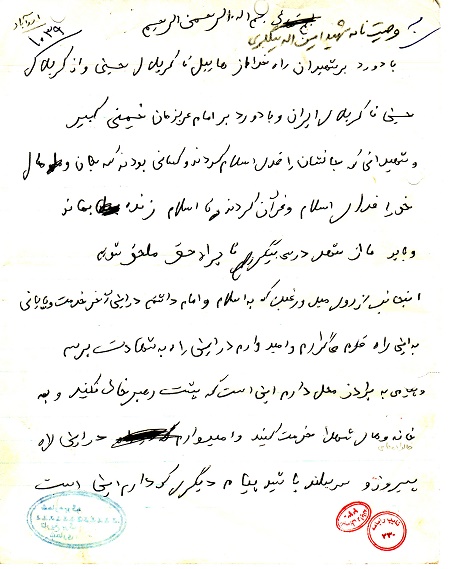 بسم الله الرحمن الرحیم
وصیت نامه شهید امین اله بیگلری
۱۰۳۹
با درود بر شهیدان راه خدا از هابیل تا کربلای حسینی و از کربلای
حسینی تا کربلای ایران و با درود بر امام عزیزمان خمینی کبیر
و شهیدانی که جانشان را فدای اسلام کردند و کسانی بودند که جان و مال
خود را فدای اسلام و قرآن کردند تا اسلام زنده بماند
و باید ما از شهدا درس بگیریم تا به راه حق ملحق شویم
اینجانب از روی میل و رغبتی که به اسلام و امام داشتم در این آخر خدمت و پایانی
به این راه قدم گذارم و امیدوارم در این راه به شهادت برسم
و پیامی به برادران محل دارم این است که پشت رهبر خالی نکنید و به
خانه و مال شهدا خدمت کنید و امیدوارم در این راه
پیروز و سربلند باشید پیام دیگری که دارم این است
۲۳۰